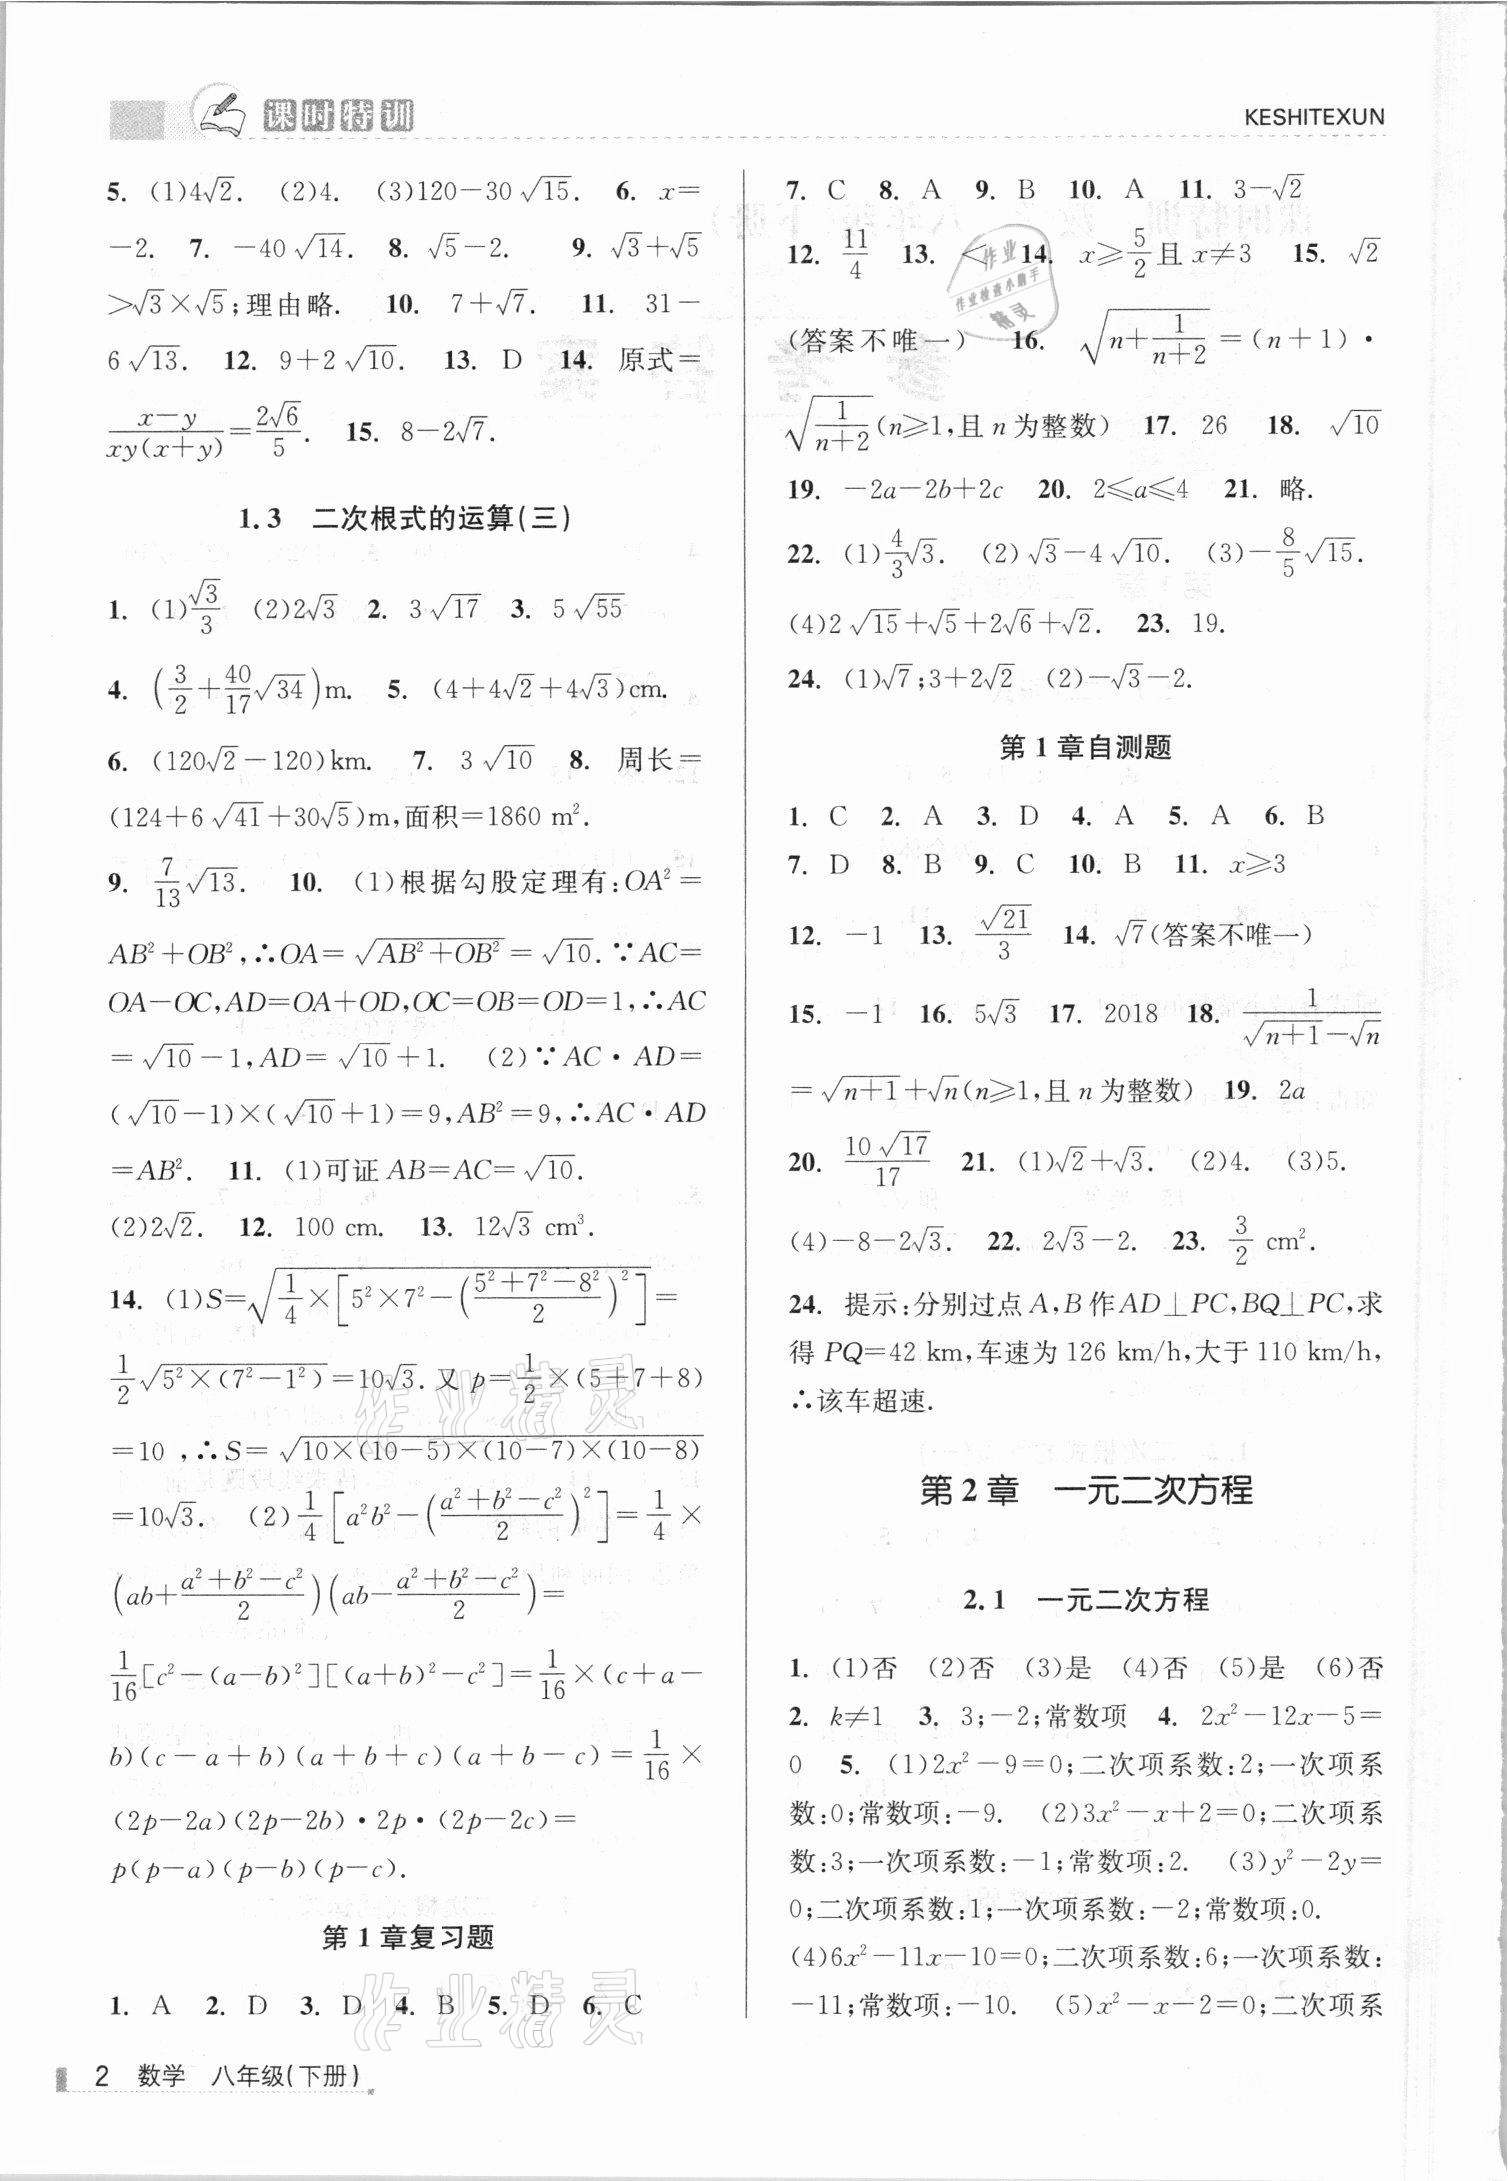 课时特训
KESHITEXUN
5. (1)4√2. (2)4. (3)120－30√15. 6. x＝
－2. 7. －40√14. 8. √5－2. 9. √3＋√5
＞√3×√5;理由略. 10. 7＋√7. 11. 31－
6√13. 12. 9＋2√10. 13. D 14. 原式＝
(x－y)/(xy(x＋y))＝2√6/5. 15. 8－2√7.
1.3 二次根式的运算(三)
1. (1)√3/3 (2)2√3 2. 3√17 3. 5√55
4. (3/2＋40/17√34)m. 5. (4＋4√2＋4√3)cm.
6. (120√2－120)km. 7. 3√10 8. 周长＝
(124＋6√41＋30√5)m,面积＝1860 m².
9. 7/13√13. 10. (1)根据勾股定理有:OA²＝
AB²＋OB²,∴OA＝√(AB²＋OB²)＝√10.∵AC＝
OA－OC,AD＝OA＋OD,OC＝OB＝OD＝1,∴AC
＝√10－1,AD＝√10＋1. (2)∵AC·AD＝
(√10－1)×(√10＋1)＝9,AB²＝9,∴AC·AD
＝AB². 11. (1)可证AB＝AC＝√10.
(2)2√2. 12. 100 cm. 13. 12√3 cm³.
14. (1)S＝√(1/4×[5²×7²－((5²＋7²－8²)/2)²])＝
1/2√(5²×(7²－1²))＝10√3.又p＝1/2×(5＋7＋8)
＝10,∴S＝√(10×(10－5)×(10－7)×(10－8))
＝10√3. (2)1/4[a²b²－((a²＋b²－c²)/2)²]＝1/4×
(ab＋(a²＋b²－c²)/2)(ab－(a²＋b²－c²)/2)＝
1/16[c²－(a－b)²][(a＋b)²－c²]＝1/16×(c＋a－
b)(c－a＋b)(a＋b＋c)(a＋b－c)＝1/16×
(2p－2a)(2p－2b)·2p·(2p－2c)＝
p(p－a)(p－b)(p－c).
第1章复习题
1. A 2. D 3. D 4. B 5. D 6. C
7. C 8. A 9. B 10. A 11. 3－√2
12. 11/4 13. ＜ 14. x≥5/2且x≠3 15. √2
(答案不唯一) 16. √(n＋1/(n＋2))＝(n＋1)·
√(1/(n＋2))(n≥1,且n为整数) 17. 26 18. √10
19. －2a－2b＋2c 20. 2≤a≤4 21. 略.
22. (1)4/3√3. (2)√3－4√10. (3)－8/5√15.
(4)2√15＋√5＋2√6＋√2. 23. 19.
24. (1)√7;3＋2√2 (2)－√3－2.
第1章自测题
1. C 2. A 3. D 4. A 5. A 6. B
7. D 8. B 9. C 10. B 11. x≥3
12. －1 13. √21/3 14. √7(答案不唯一)
15. －1 16. 5√3 17. 2018 18. 1/(√(n＋1)－√n)
＝√(n＋1)＋√n(n≥1,且n为整数) 19. 2a
20. 10√17/17 21. (1)√2＋√3. (2)4. (3)5.
(4)－8－2√3. 22. 2√3－2. 23. 3/2 cm².
24. 提示:分别过点A,B作AD⊥PC,BQ⊥PC,求
得PQ＝42 km,车速为126 km/h,大于110 km/h,
∴该车超速.
第2章 一元二次方程
2.1 一元二次方程
1. (1)否 (2)否 (3)是 (4)否 (5)是 (6)否
2. k≠1 3. 3;－2;常数项 4. 2x²－12x－5＝
0 5. (1)2x²－9＝0;二次项系数:2;一次项系
数:0;常数项:－9. (2)3x²－x＋2＝0;二次项系
数:3;一次项系数:－1;常数项:2. (3)y²－2y＝
0;二次项系数:1;一次项系数:－2;常数项:0.
(4)6x²－11x－10＝0;二次项系数:6;一次项系数:
－11;常数项:－10. (5)x²－x－2＝0;二次项系
2 数学 八年级(下册)
作业
作业检查小助手
精灵
作业精灵
作业精灵